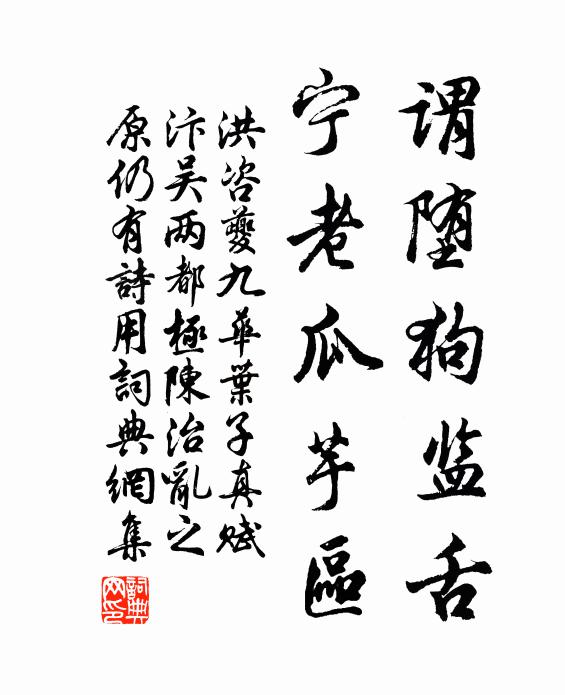 谓堕狗监舌
宁老瓜芋區
洪咨夔九華葉子真賦
汴吴两都極陳治亂之
原仍有詩用詞典網集
詞典
网印